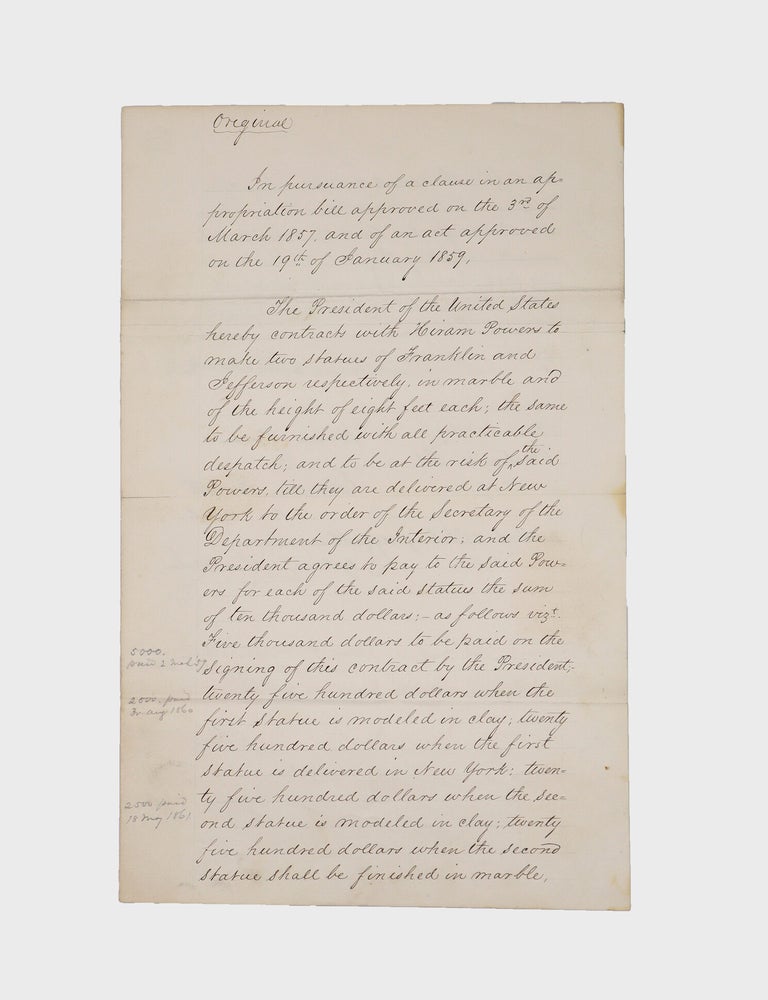 Original
In pursuance of a clause in an ap=
propriation bill approved on the 3rd of
March 1857, and of an act approved
on the 19th of January 1859,
The President of the United States
hereby contracts with Hiram Powers to
make two statues of Franklin and
Jefferson respectively, in marble and
of the height of eight feet each; the same
to be furnished with all practicable
despatch; and to be at the risk of the said
Powers, till they are delivered at New
York to the order of the Secretary of the
Department of the Interior; and the
President agrees to pay to the said Pow=
ers for each of the said statues the sum
of ten thousand dollars; – as follows vizt.
Five thousand dollars to be paid on the
signing of this contract by the President;
twenty five hundred dollars when the
first statue is modeled in clay; twenty
five hundred dollars when the first
statue is delivered in New York; twen=
ty five hundred dollars when the sec=
ond statue is modeled in clay; twenty
five hundred dollars when the second
statue shall be finished in marble,
5000.
paid 2
2500 paid
Aug 1860
2500 paid
18 May 1861